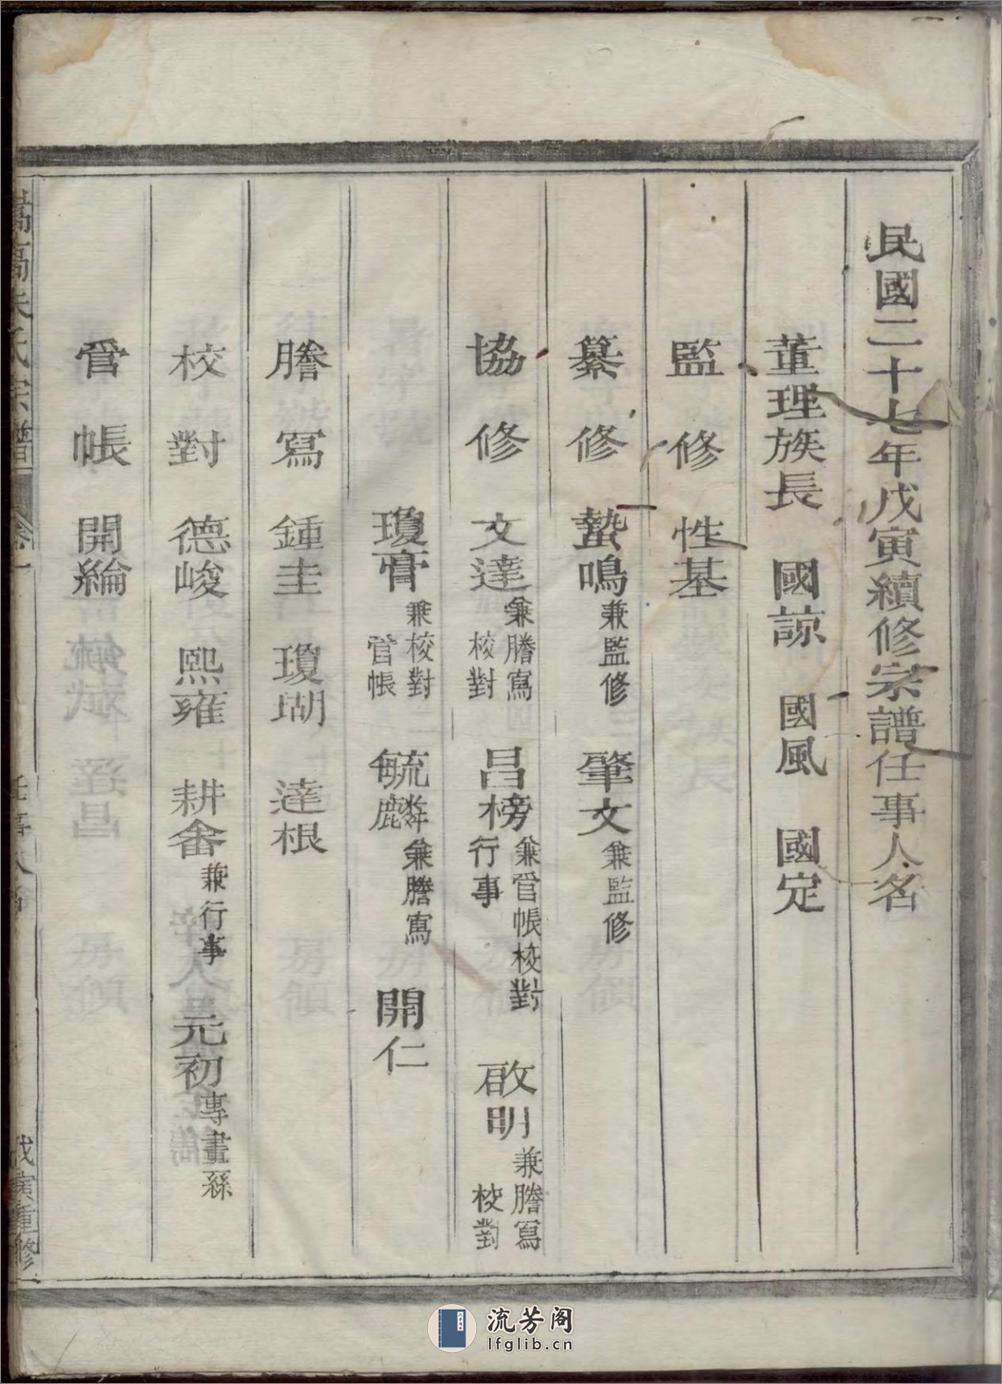 民國二十七年戊寅續修宗譜任事人名
董理族長 國諒 國風 國定
監修 性基
纂修 蟄鳴兼監修 肇文兼監修
協修 文達兼謄寫校對 昌榜兼管帳校對行事 啟明兼謄寫校對
瓊膏兼校對管帳 毓麟兼謄寫 開仁
謄寫 鍾圭 瓊瑚 達根
校對 德峻 熙雍 耕畬兼行事 元初專畫系
管帳 開綸
萬高朱氏宗譜 卷一 任事人名 戊寅重修
流芳阁
lfglib.cn